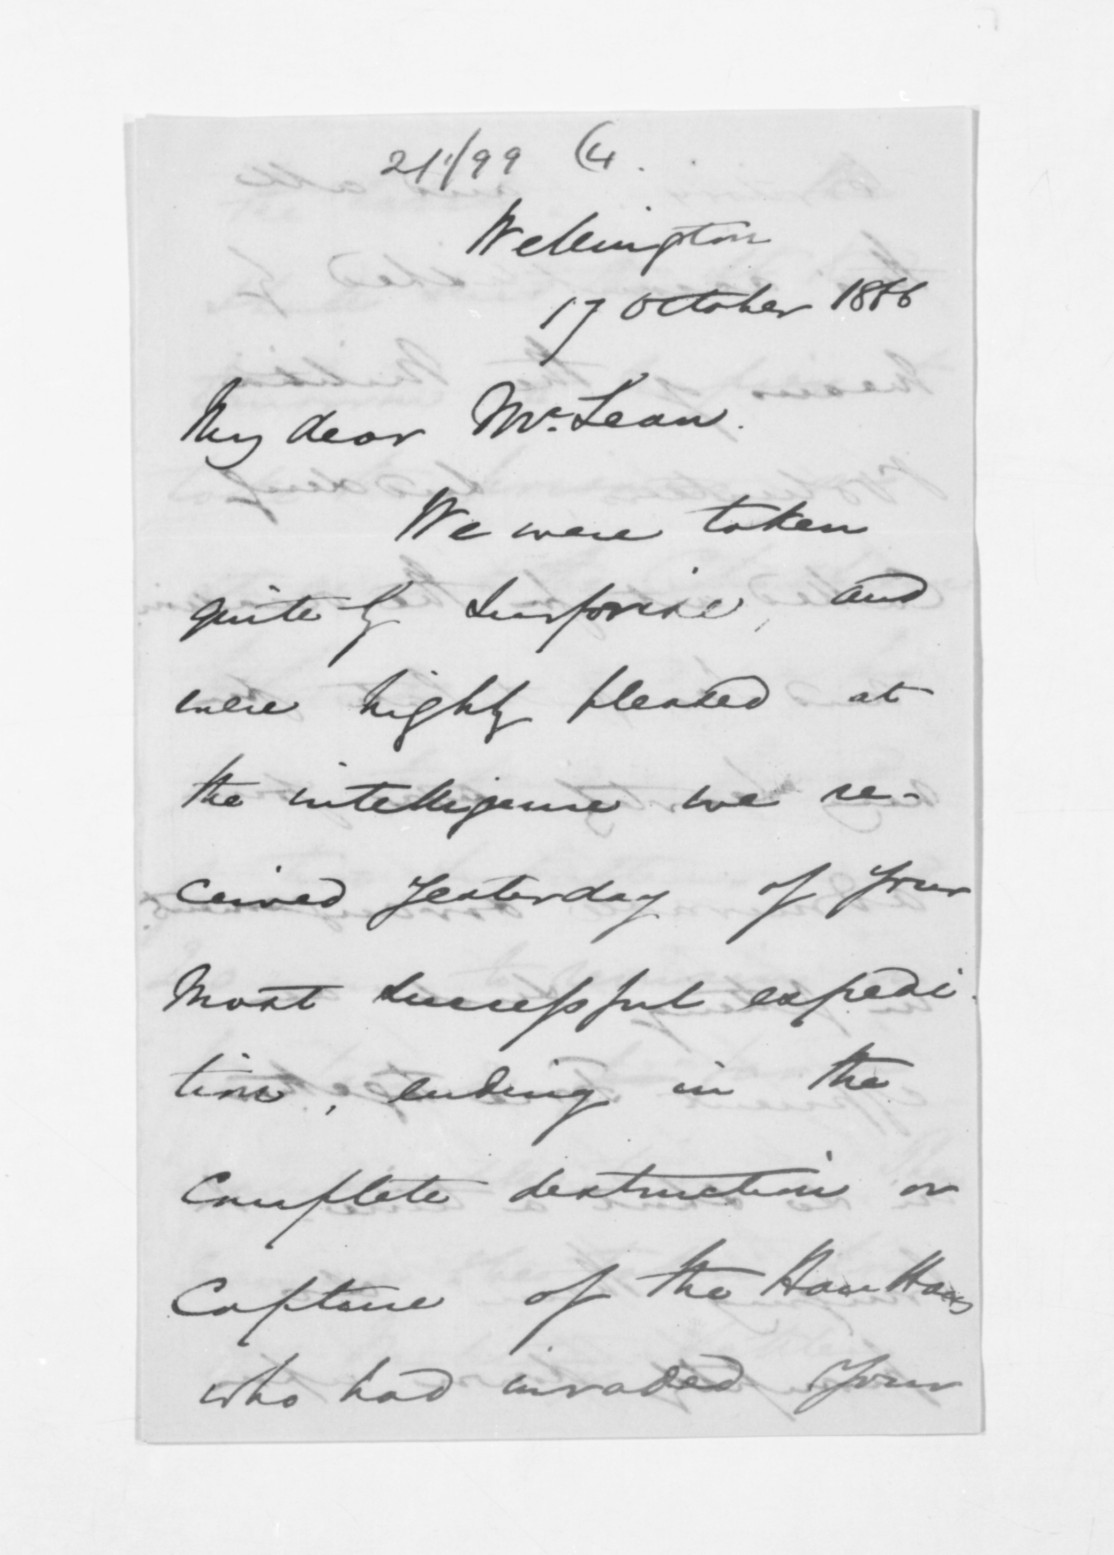 211/99 (4.
Wellington
17 October 1866
My dear Mr. Lean.
We were taken
quite by surprise, and
were highly pleased at
the intelligence we re-
ceived yesterday of your
most successful expedi-
tion, ending in the
complete destruction or
capture of the Hau Haus
who had invaded your